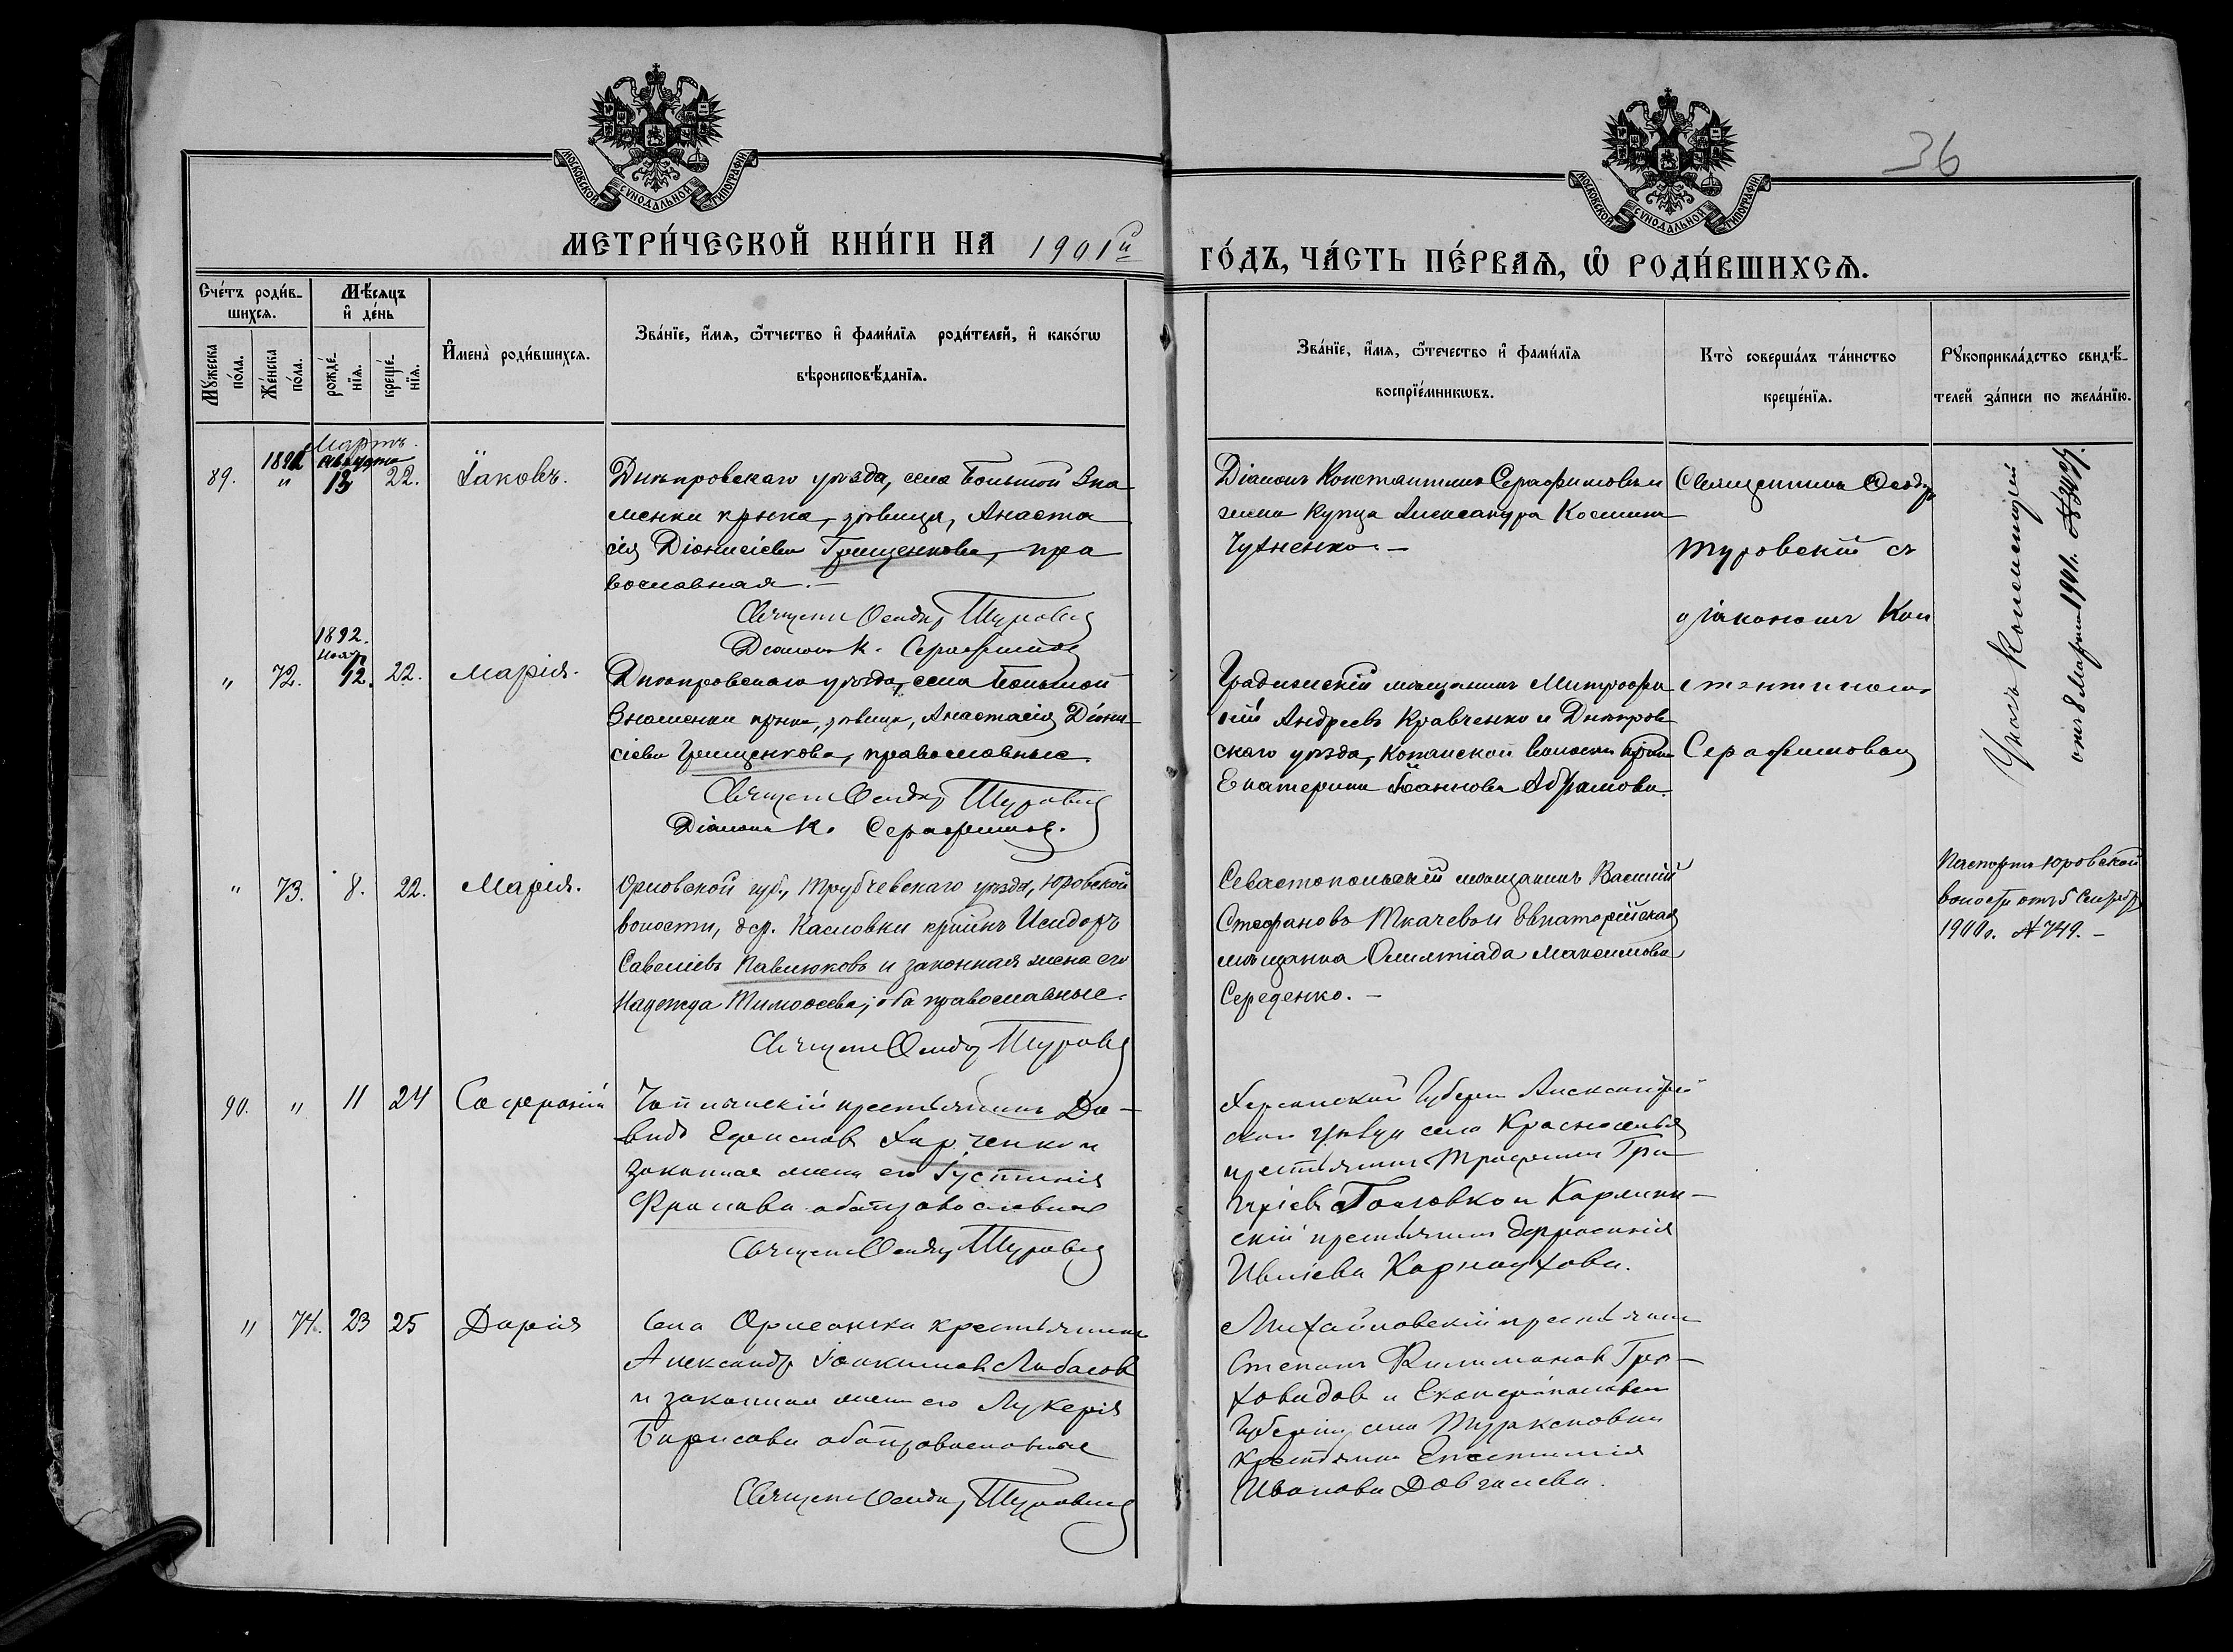 36
МОСКОВСКОЙ СѴНОДАЛЬНОЙ ТИПОГРАФІИ
МОСКОВСКОЙ СѴНОДАЛЬНОЙ ТИПОГРАФІИ
МЕТРИ́ЧЕСКОЙ КНИ́ГИ НА 1901й
ГО́ДЪ, ЧА́СТЬ ПЕ́РВАѦ, Ѡ РОДИ́ВШИХСѦ.
Сче́тъ роди́в-
шихсѧ.
Мꙋжеска по́ла.
Же́нска по́ла.
Мѣ́сяцъ и де́нь
рожде́-нїѧ.
креще́-нїѧ.
И҆мена̀ роди́вшихсѧ.
Зва́нїе, и҆́мѧ, ѻ҆́тчество и҆ фами́лїѧ роди́телей, и҆ како́гѡ
вѣроисповѣ́данїѧ.
Зва́нїе, и҆́мѧ, ѻ҆́течество и҆ фами́лїѧ
воспрїе́мникѡвъ.
Кто̀ соверша́лъ та́инство
креще́нїѧ.
Рꙋкоприкла́дство свидѣ́-
телей за́писи по жела́нїю.
Мартъ.
1891 Августа
89. " 13 22. Іаковъ.
Днѣпровскаго уѣзда, села Большой Зна
менки крнка, дѣвица, Анаста
сія Діонисіева Грищенкова, пра
вославная.—
Священн Ѳеодор Туровск
Діаконъ К. Серафимов
Діаконъ Константинъ Серафимовъ и
жена купца Александра Косьмина
Чухненко.—
Священникъ Ѳеодоръ
Туровскій съ
діакономъ Кон
стантиномъ
Серафимовымъ
отъ 8 Марта 1901г.
1892.
Нояб.
" 72. 12. 22. Марія.
Днѣпровскаго уѣзда, села Большой
Знаменки крнка, дѣвица, Анастасія Діони-
сіева Грищенкова, православные.
Священ Ѳеодор Туровск
Діаконъ К. Серафимов.
Градижскій мѣщанинъ Митрофа
ній Андреевъ Кравченко и Днѣпров
скаго уѣзда, Копанской волости крнка
Екатерина Іоаннова Абрамова.
" 73. 8. 22. Марія.
Орловской губ., Трубчевскаго уѣзда, Юровской
волости, дер. Касловки крнинъ Исидоръ
Савеліевъ Павлюковъ и законная жена его
Надежда Тимоѳеева; оба православные.
Священ Ѳеодор Туровск
Севастопольскій мѣщанинъ Василій
Стефановъ Ткачевъ и Евпаторійская
мѣщанка Олимпіада Максимова
Середенко.—
Паспортъ Юровской
волости отъ 5 Сентября
1900г. № 749.—
90. " 11 24 Софроній
Чаплинскій крестьянинъ Да-
видъ Ефимовъ Харченко и
законная жена его Іустинія
Фролова оба православные
Священ Ѳеодор Туровск
Херсонской Губерн Александрій
скаго уѣзда села Красноселья
крестьянинъ Трофимъ Гри
горіевъ Головко и
крестьянка Евфросинія
Карнаухова.
" 74. 23 25 Дарія
Села Орлеанска крестьянинъ
Александръ Іоакимовъ Лабасовъ
и законная жена его Лукерія
Борисова оба православные
Священ Ѳеодор Туровск
Михайловскій крестьянинъ
Степанъ Филимоновъ Гре-
ховодовъ и Екатеринославской
Губерніи села Туркеновки
крестьянка Епистимія
Иванова Довгалева.